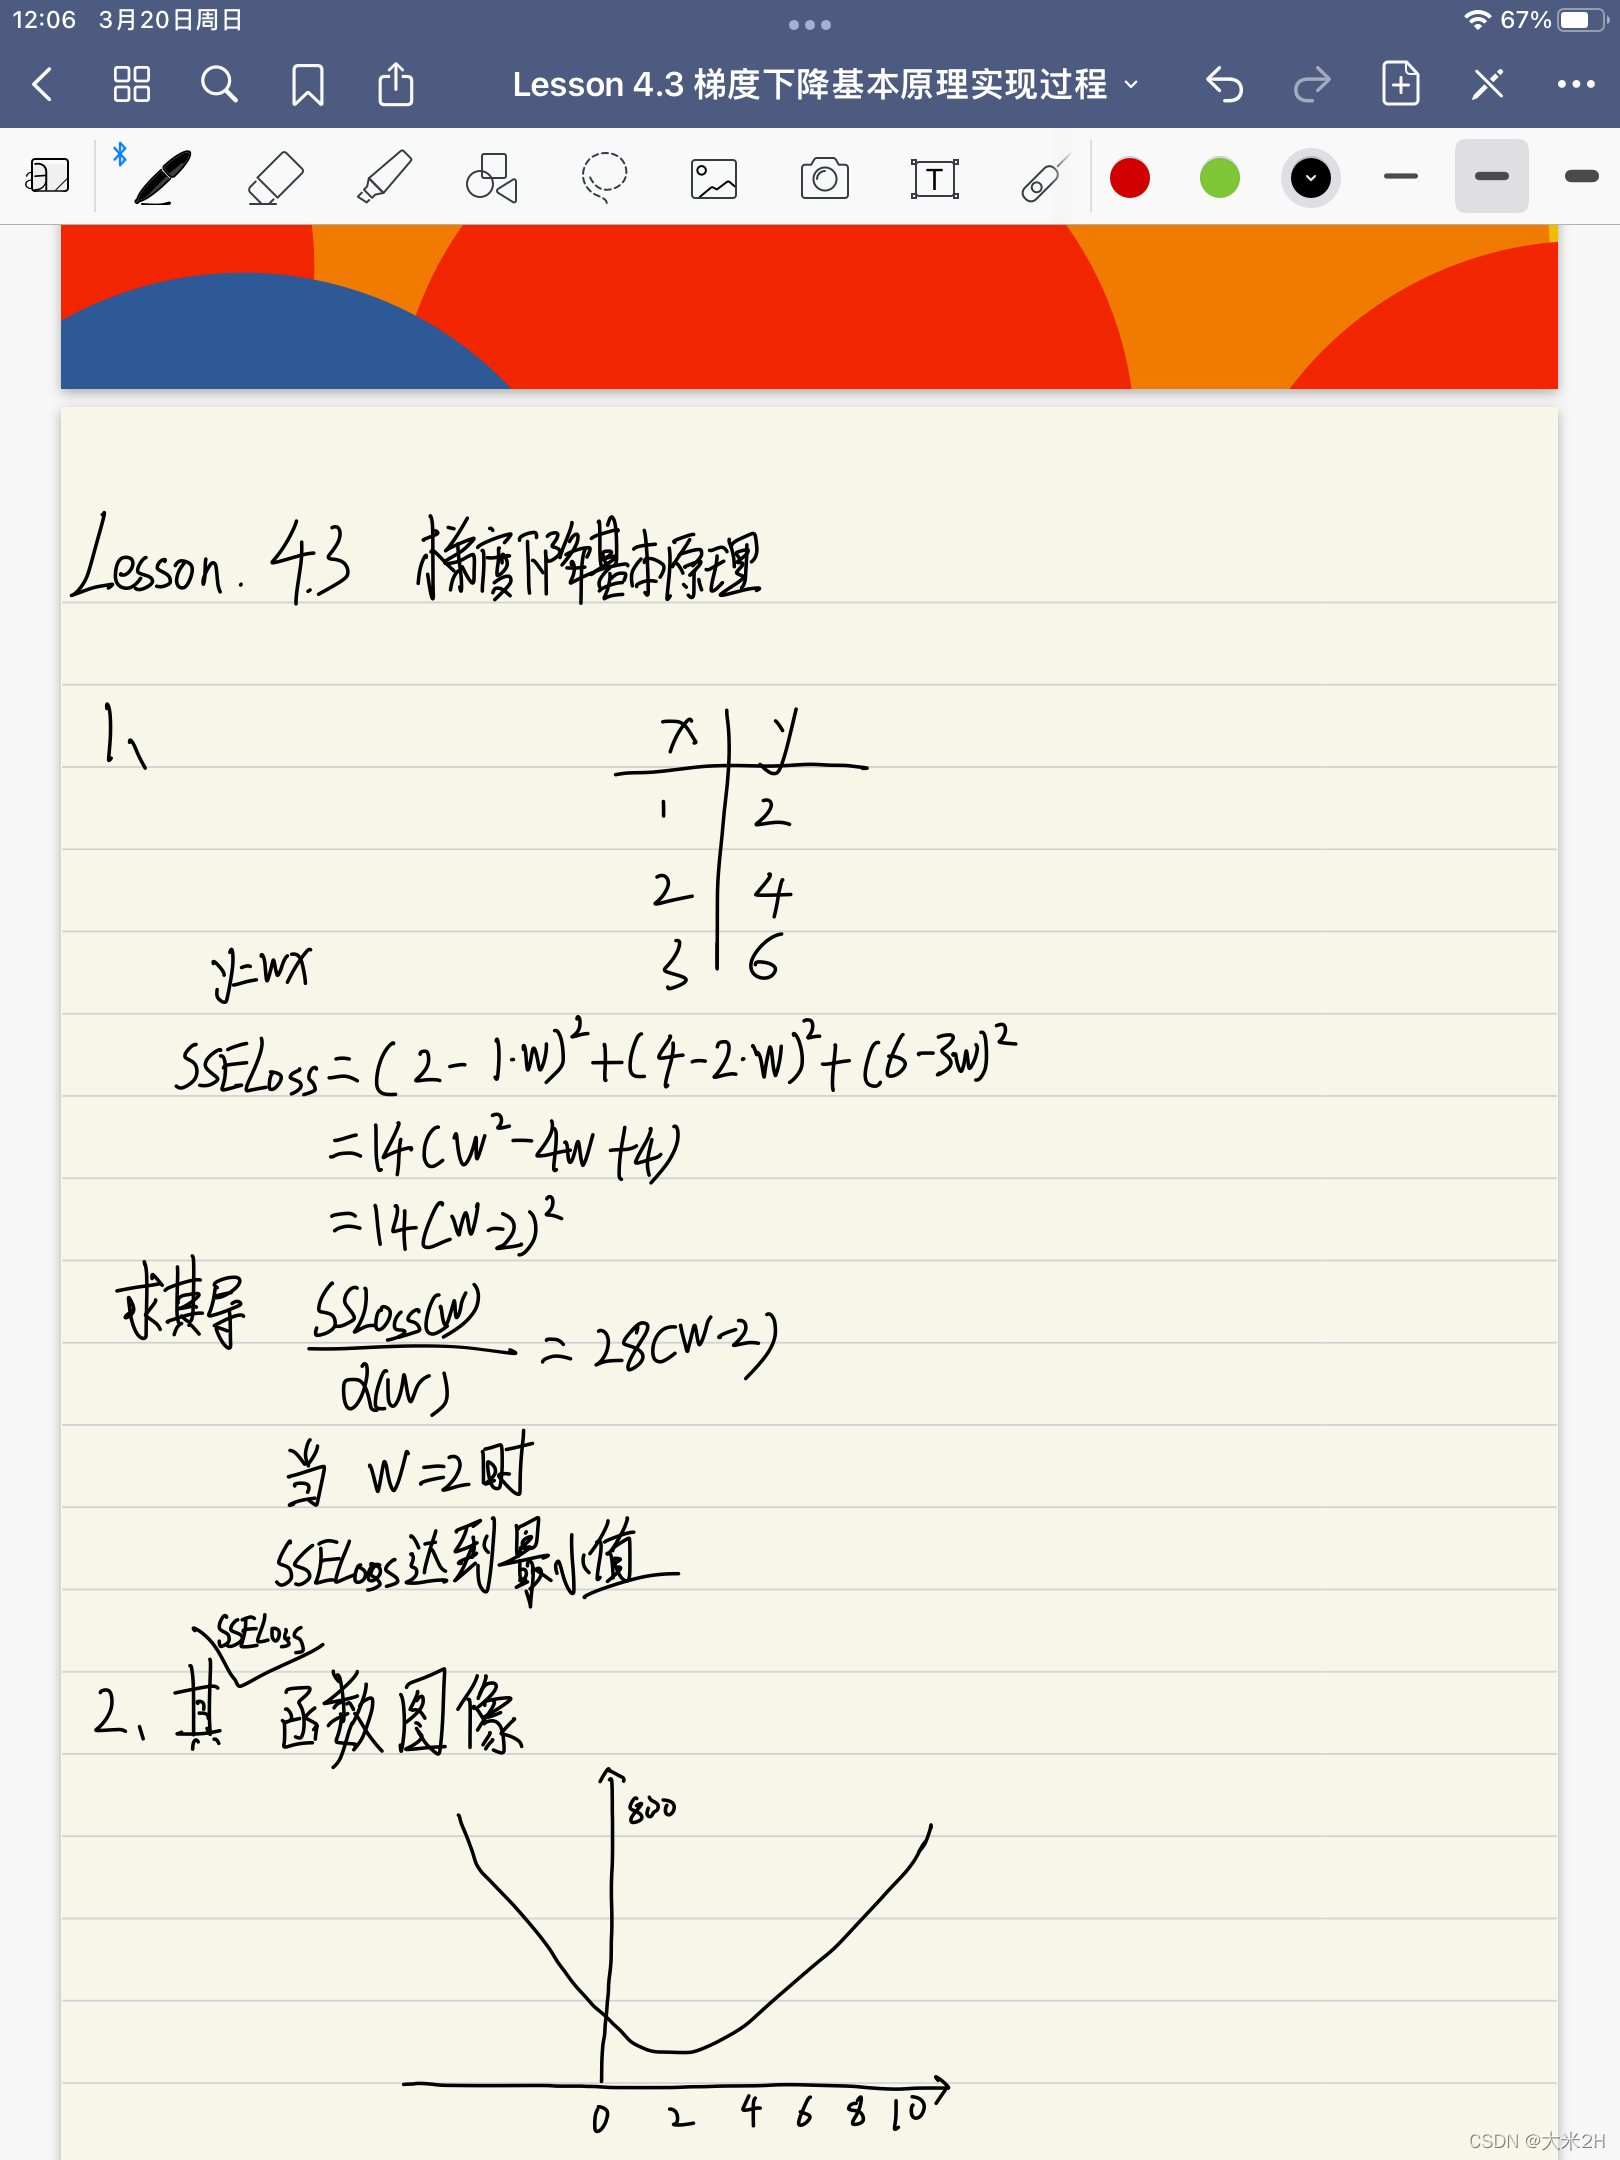 12:06 3月20日周日
67%
Lesson 4.3 梯度下降基本原理实现过程
a
T
Lesson. 4.3 梯度下降基本原理
1、
x y
1 2
2 4
3 6
y=wx
SSELoss = (2-1·w)²+(4-2·w)²+(6-3w)²
=14(w²-4w+4)
=14(w-2)²
求其导 SSLoss(w) / d(w) = 28(w-2)
当 w=2时
SSELoss达到最小值
SSELoss
2、其 函数图像
800
0 2 4 6 8 10
CSDN @大米2H